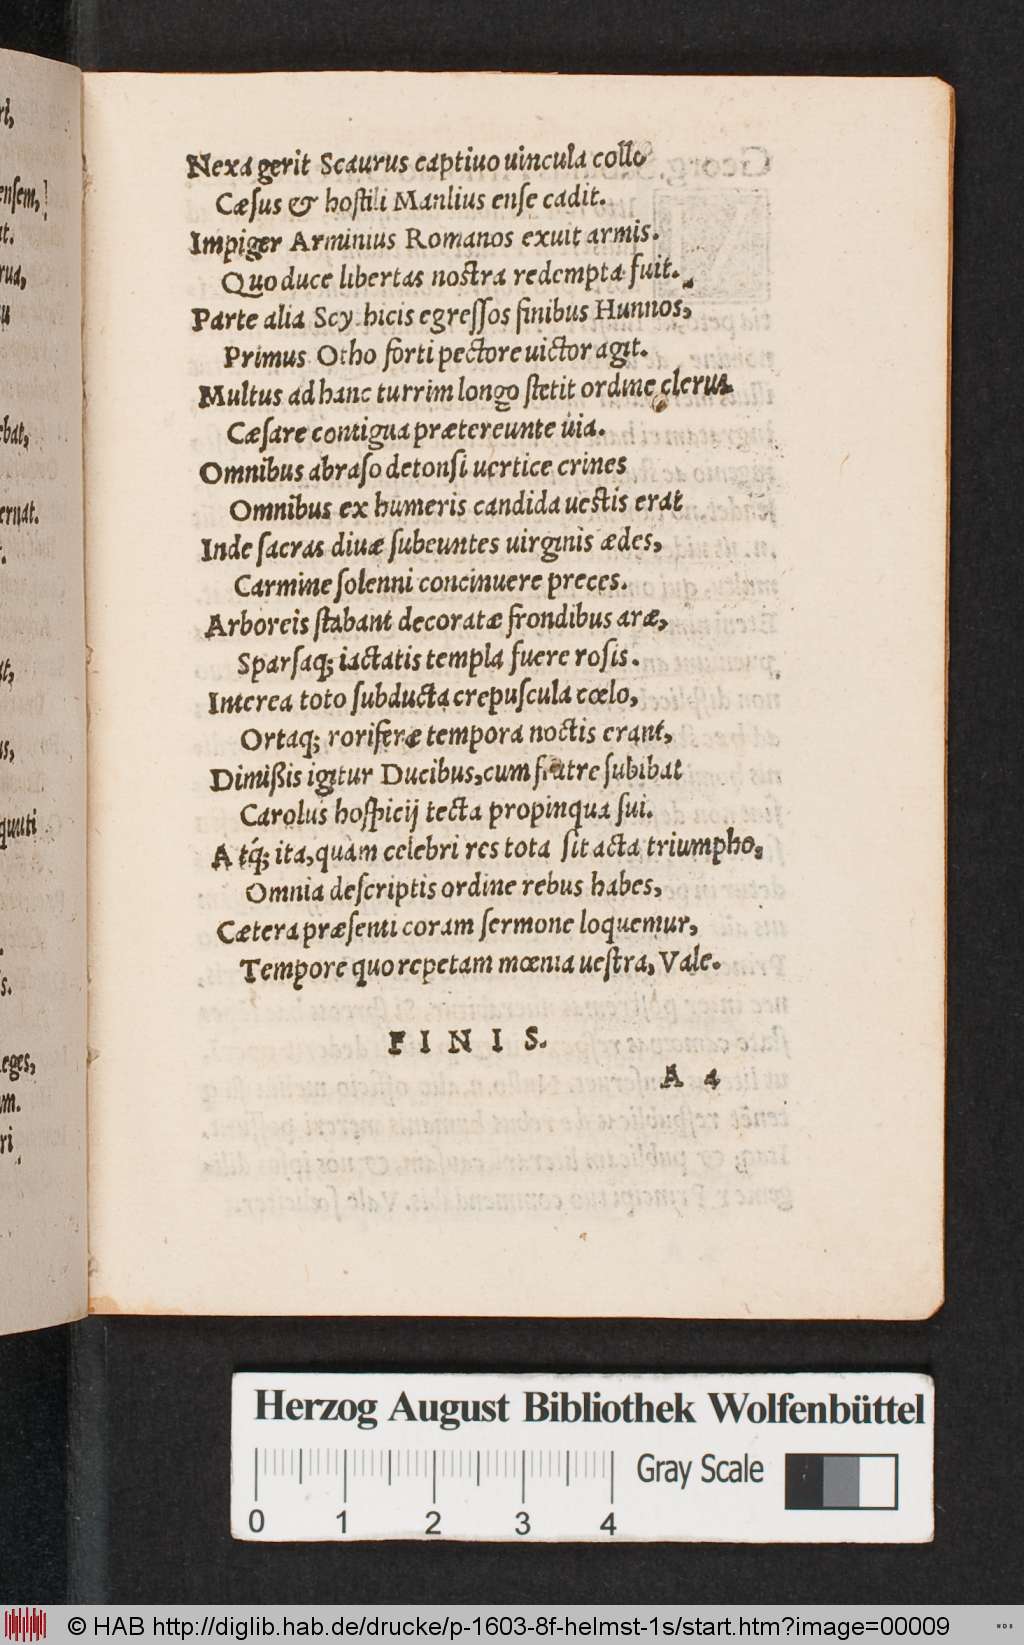 Nexa gerit Scaurus captiuo uincula collo
Cæsus & hostili Manlius ense cadit.
Impiger Arminius Romanos exuit armis.
Quo duce libertas nostra redempta fuit.
Parte alia Scy hicis egressos finibus Hunnos,
Primus Otho forti pectore uictor agit.
Multus ad hanc turrim longo stetit ordine clerus
Cæsare contigua prætereunte uia.
Omnibus abraso detonsi uertice crines
Omnibus ex humeris candida uestis erat
Inde sacras diuæ subeuntes uirginis ædes,
Carmine solenni concinuere preces.
Arboreis stabant decoratæ frondibus aræ,
Sparsaq; iactatis templa fuere rosis.
Interea toto subducta crepuscula cœlo,
Ortaq; roriferæ tempora noctis erant,
Dimißis igitur Ducibus, cum fratre subibat
Carolus hospicij tecta propinqua sui.
Atq́; ita, quàm celebri res tota sit acta triumpho,
Omnia descriptis ordine rebus habes,
Cætera præsenti coram sermone loquemur,
Tempore quo repetam mœnia uestra, Vale.
F I N I S.
A 4
Herzog August Bibliothek Wolfenbüttel
Gray Scale
0 1 2 3 4
© HAB http://diglib.hab.de/drucke/p-1603-8f-helmst-1s/start.htm?image=00009